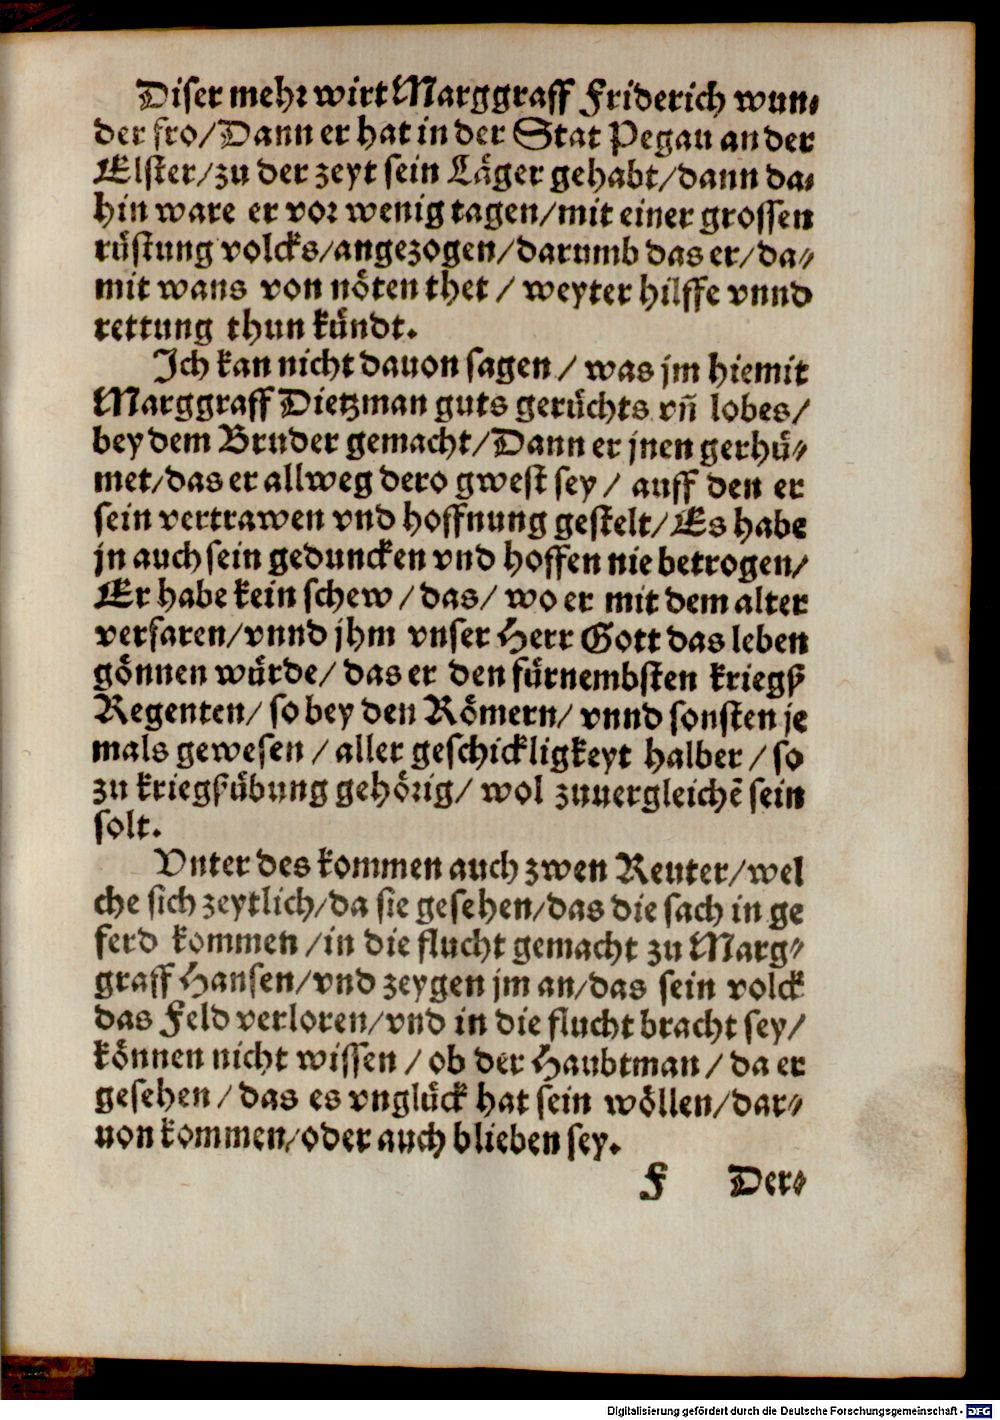 Diser mehr wirt Marggraff Friderich wun⸗
der fro/Dann er hat in der Stat Pegau an der
Elster/zu der zeyt sein Läger gehabt/dann da⸗
hin ware er vor wenig tagen/mit einer grossen
rüstung volcks/angezogen/darumb das er/da⸗
mit wans von nöten thet / weyter hilffe vnnd
rettung thun kündt.
Ich kan nicht dauon sagen / was jm hiemit
Marggraff Dietzman guts gerüchts vñ lobes/
bey dem Bruder gemacht/Dann er jnen gerhü⸗
met/das er allweg dero gwest sey / auff den er
sein vertrawen vnd hoffnung gestelt/Es habe
jn auch sein geduncken vnd hoffen nie betrogen/
Er habe kein schew / das/ wo er mit dem alter
verfaren/vnnd jhm vnser Herr Gott das leben
gönnen würde/ das er den fürnembsten kriegß
Regenten/ so bey den Römern/ vnnd sonsten je
mals gewesen / aller geschickligkeyt halber / so
zu kriegßübung gehörig/ wol zuuergleichẽ sein
solt.
Vnter des kommen auch zwen Reuter/wel
che sich zeytlich/da sie gesehen/das die sach in ge
ferd kommen /in die flucht gemacht zu Marg⸗
graff Hansen/vnd zeygen jm an/das sein volck
das Feld verloren/vnd in die flucht bracht sey/
können nicht wissen / ob der Haubtman / da er
gesehen / das es vnglück hat sein wöllen/dar⸗
uon kommen/oder auch blieben sey.
F Der⸗
Digitalisierung gefördert durch die Deutsche Forschungsgemeinschaft - DFG